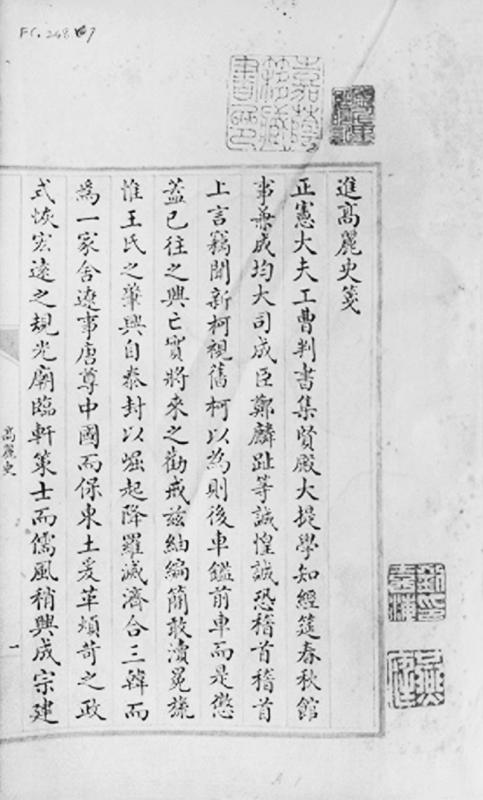 嘉蔭簃藏書印
進高麗史箋
正憲大夫工曹判書集賢殿大提學知經筵春秋館
事兼成均大司成臣鄭麟趾等誠惶誠恐稽首稽首
上言竊聞新柯視舊柯以為則後車鑑前車而是懲
葢已往之興亡實將來之勸戒兹紬編簡敢瀆冕旒
惟王氏之肇興自泰封以崛起降羅滅濟合三韓而
為一家舍遼事唐尊中國而保東土爰革煩苛之政
式恢宏遠之規光廟臨軒策士而儒風稍興成宗建
高麗史 一